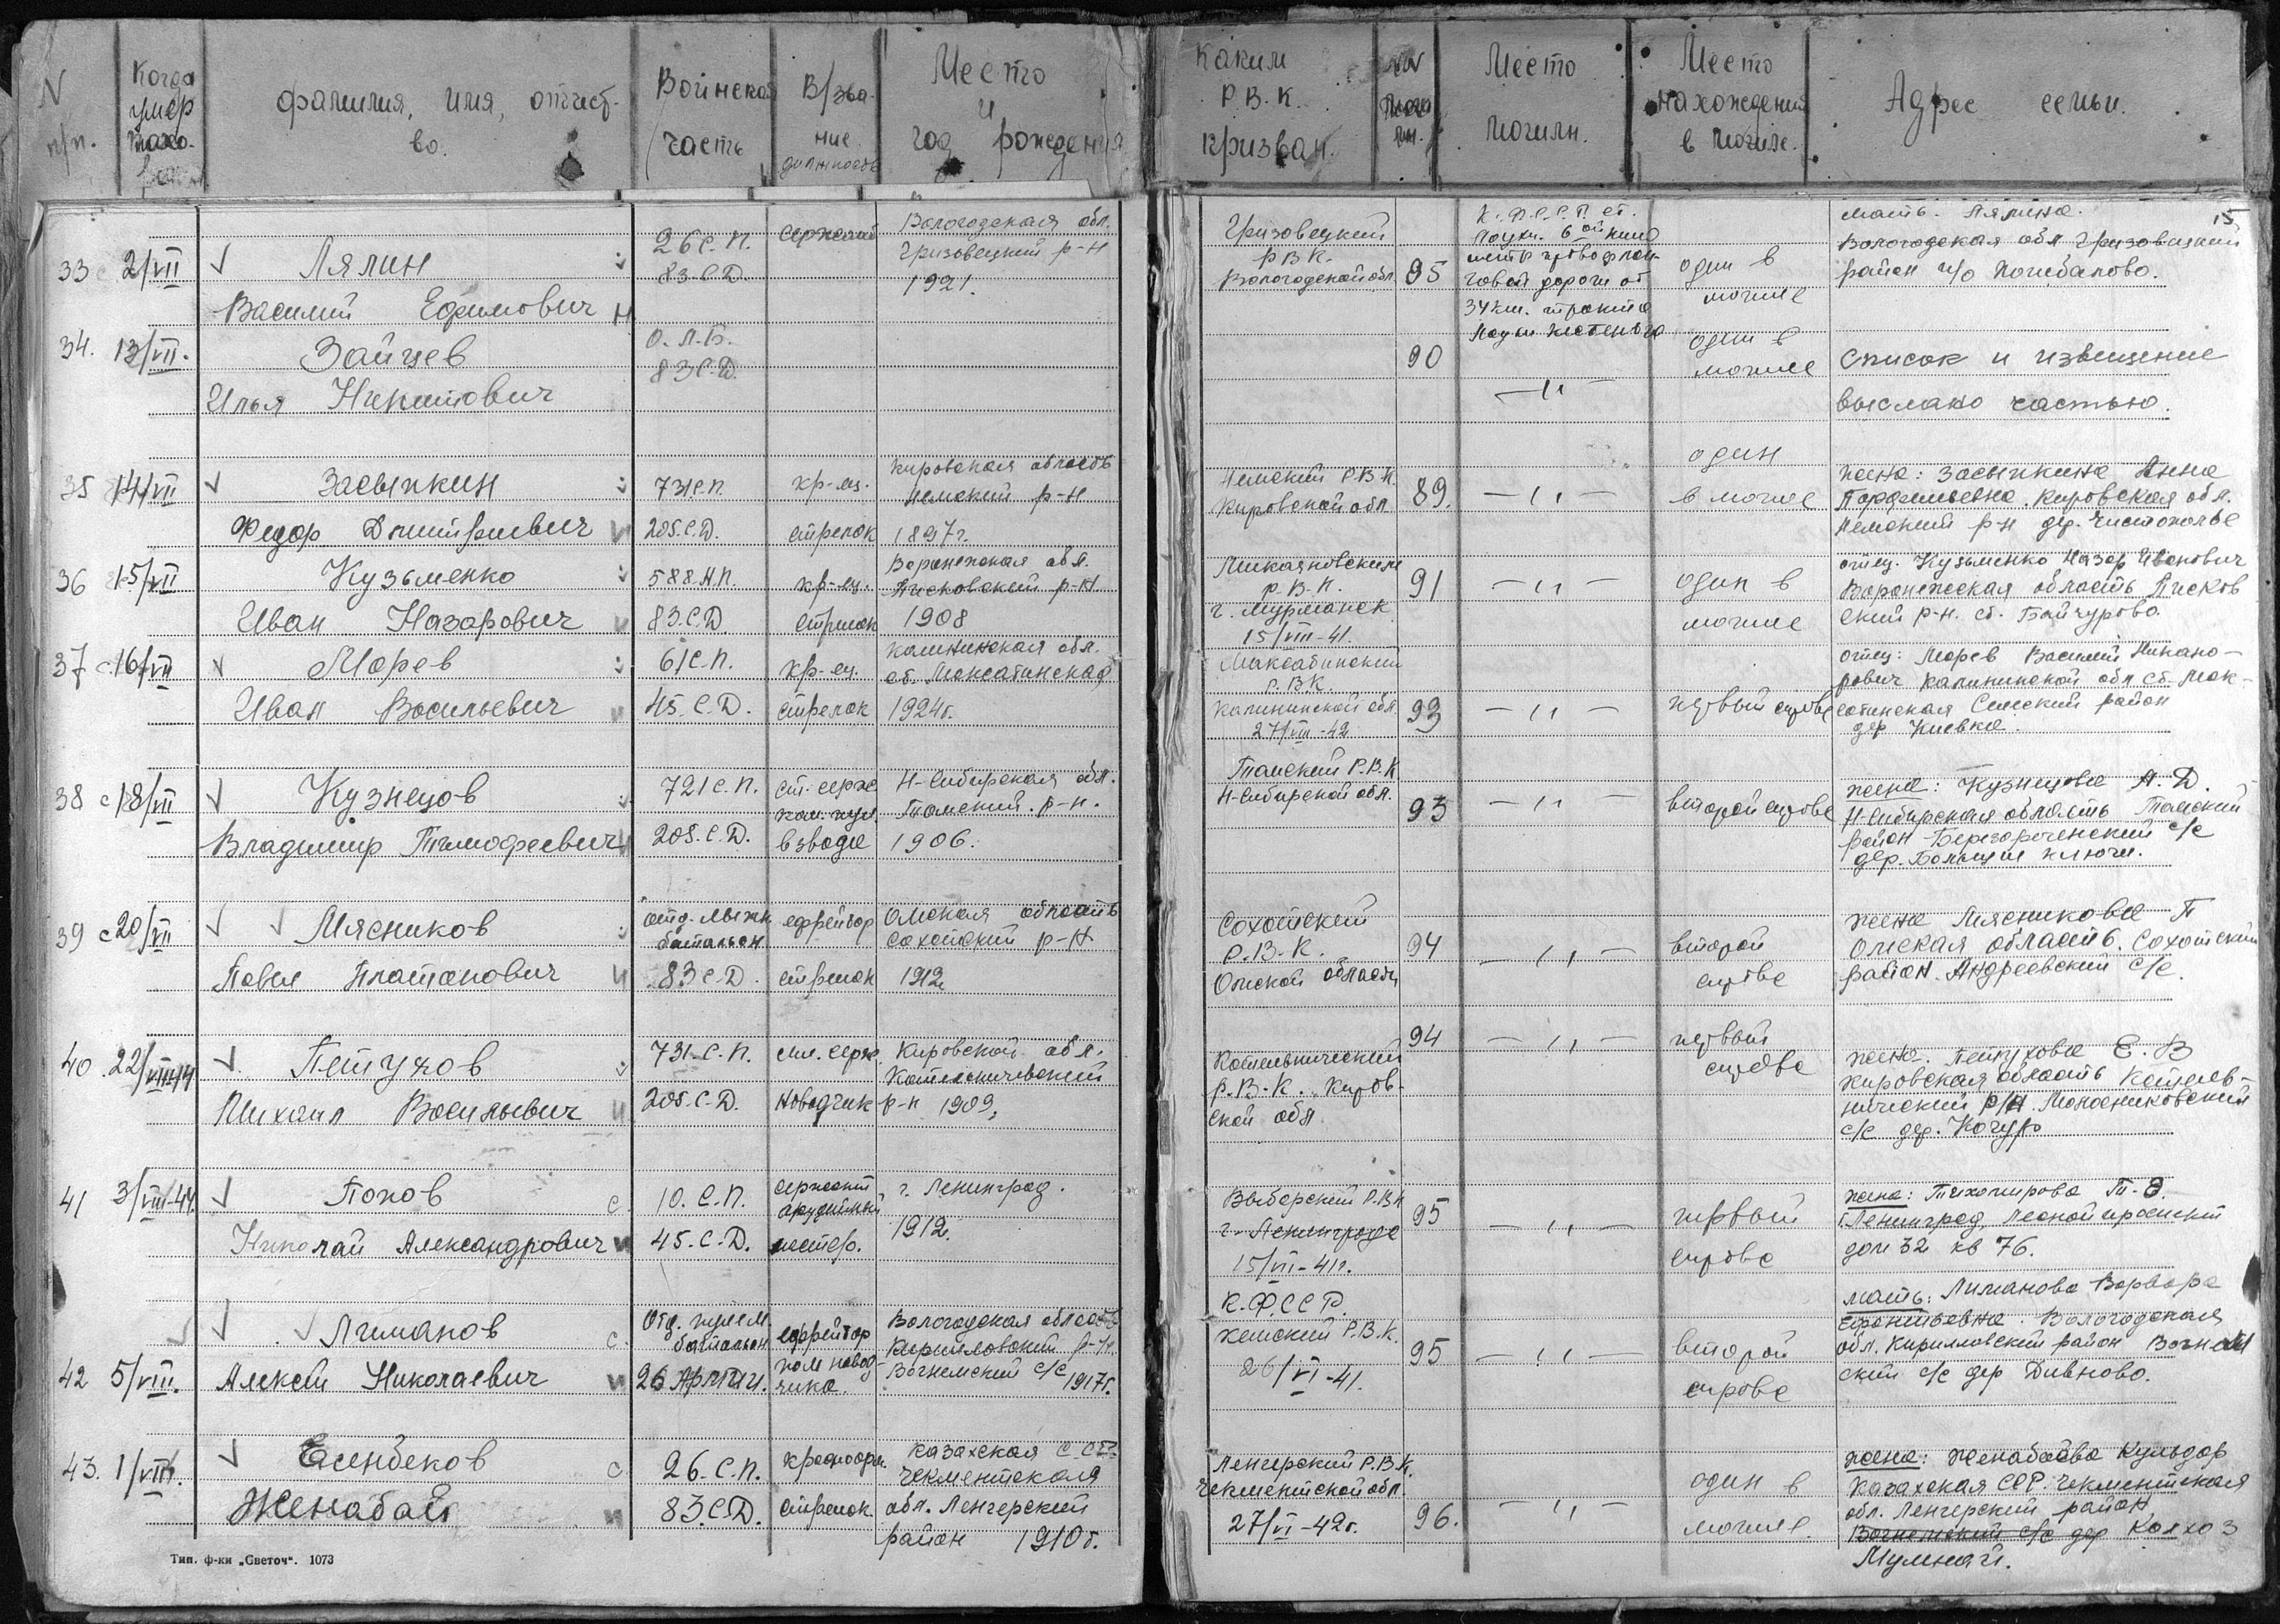 N п/п.
Когда умер похо-
фамилия, имя, отчест-во.
Воинская часть
В/зва-ние должность
Место и год рождения
Каким Р.В.К. призван.
NN моги лы.
Место могилы.
Место нахождения в могиле.
Адрес семьи.
15
33 2/VII Лялин
Василий Ефимович
26 С.П.
83 С.Д.
сержант
Вологодская обл.
Грязовецкий р-н
1921.
Грязовецкий
Р.В.К.
Вологодской обл.
95
К.Ф.С.С.Р. ст.
Лоухи. 6ой кило
метр
говой дороги от
34 км. тракта
Лоухи Кестеньга
один в
могиле
мать. Лялина.
Вологодская обл Грязовецкий
район п/о
34. 13/VII. Зайцев
Илья Никитович
О.Л.Б.
83 С.Д.
90
—〃—
один в
могиле
Список и извещение
выслано частью.
35 14/VII Засыпкин
Федор Дмитриевич
731 С.П.
205. С.Д.
кр-ец.
стрелок
Кировская область
Немский р-н
1897г.
Немский Р.В.К.
Кировской обл.
89.
—〃—
один
в могиле
жена: Засыпкина Анна
Кировская обл.
Немский р-н дер. Чистополье
36 15/VII Кузьменко
Иван Назарович
588. А.П.
83. С.Д.
кр-ец.
стрелок
Воронежская обл.
Песковский р-н.
1908
Р.В.К.
г. Мурманск
15/VIII-41.
91
—〃—
один в
могиле
отец. Кузьменко Назар Иванович
Воронежская область Песков
ский р-н. ст. Байчурово.
37 с. 16/VII Морев
Иван Васильевич
61 С.П.
45. С.Д.
кр-ец.
стрелок
Калининская обл.
ст. Максатинская
1924г.
Максатинский
Р.ВК.
Калининской обл.
27/VIII-42
93
—〃—
первый справа
отец: Морев Василий Никано-
рович Калининской обл ст. Мак-
сатинская район
дер Киевка.
38 с 18/VII Кузнецов
Владимир Тимофеевич
721 С.П.
205. С.Д.
ст. серж
пом. ком.
взвода
Н-Сибирская обл.
Томский. р-н.
1906.
Томский Р.В.К
Н-Сибирской обл.
93
—〃—
второй справа
жена: Кузнецова А.Д.
Н-Сибирская область Томский
район Березореченский с/с
дер. Большие ключи.
39 с 20/VII Мясников
Павел Платонович
отд. лыжн
батальон
83 С.Д.
ефрейтор
стрелок
Омская область
р-н
1912
Р.В.К.
Омской области
94
—〃—
второй
справа
жена Мясникова П
Омская область.
район. Андреевский с/с.
40. 22/VII-44 Петухов
Михаил Васильевич
731. С.П.
205. С.Д.
мл. серж.
наводчик
Кировской обл.
р-н 1909.
Котельнический
Р.В.К. Киров-
ской обл
94
—〃—
первый
справа
жена. Петухова Е.В
Кировская область Котель-
нический р/н.
с/с дер.
41 3/VIII-44. Попов
Николай Александрович
10. С.П.
45. С.Д.
сержант
орудийный
мастер.
г. Ленинград.
1912.
Выборгский Р.В.К
г. Ленинграда
15/VII-41г.
95
—〃—
первый
справа
жена: Тихомирова Т.Э.
г. Ленинград, Лесной проспект
дом 32 кв 76.
42 5/VIII. Лиманов
Алексей Николаевич
отд. пулем.
батальон
26 Армии.
ефрейтор
пом навод-
чика.
Вологодская область
Кирилловский р-н.
Вогнемский с/с 1917г.
К.Ф.ССР.
Кемский Р.В.К.
26/VI-41.
95
—〃—
второй
справа
мать: Лиманова Варвара
Вологодская
обл. Кирилловский район Вогнем
ский с/с дер Дивково.
43. 1/VIII. Есенбеков
Женабай
26. С.П.
83. С.Д.
красноарм.
стрелок.
Казахская С.С.Р.
Чекментская
обл. Ленгерский
район 1910г.
Ленгерский Р.В.К.
Чекментской обл.
27/VI-42г.
96.
—〃—
один в
могиле.
жена: Женабаева Кульдар
Казахская ССР. Чекментская
обл. Ленгерский район
Вогнемский с/с дер Колхоз
Мулнай.
Тип. ф-ки „Светоч“. 1073